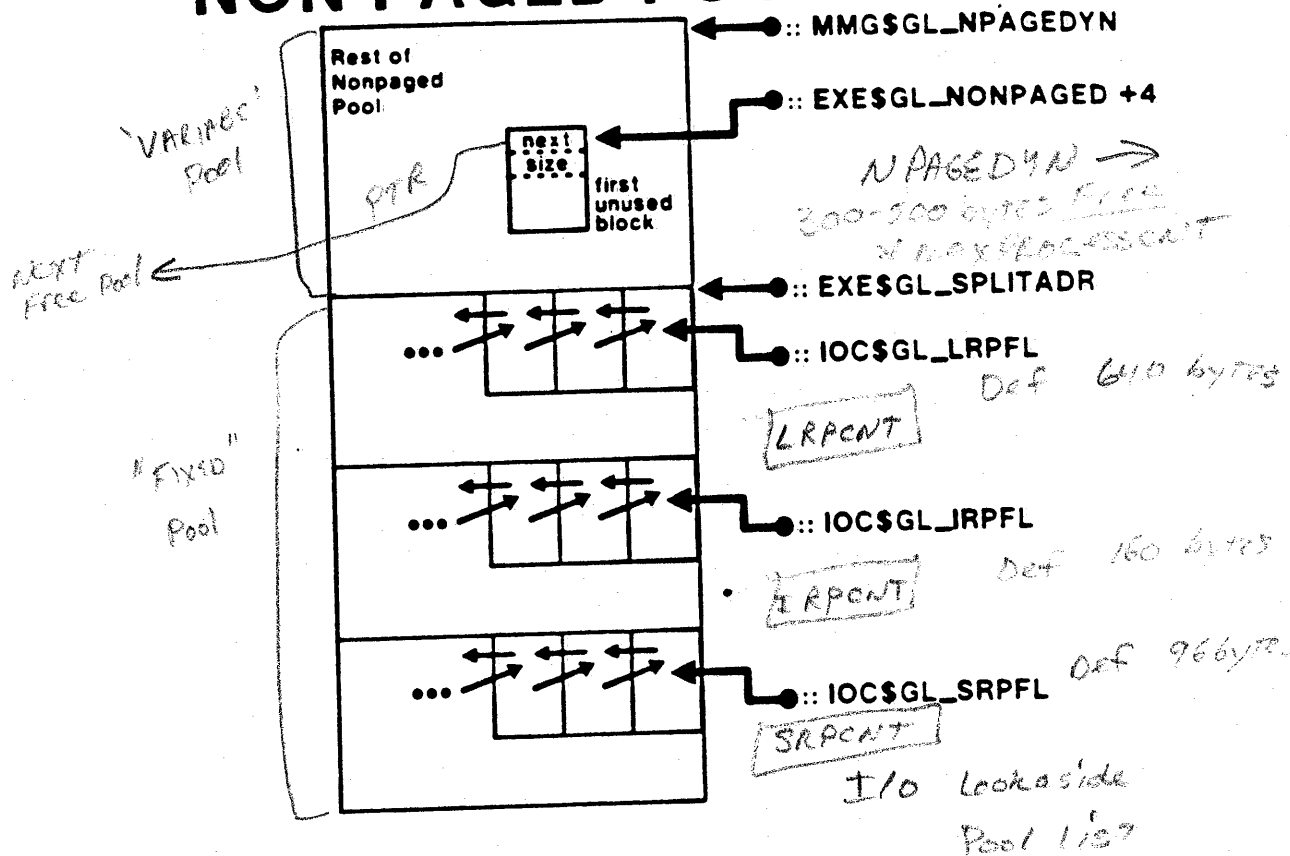 NON PAGED
:: MMG$GL_NPAGEDYN
Rest of
Nonpaged
Pool
:: EXE$GL_NONPAGED +4
'VARIABLE'
Pool
next
size
first
unused
block
PTR
NPAGEDYN →
300-500 bytes Free
* MAXPROCESSCNT
NEXT
Free Pool
:: EXE$GL_SPLITADR
...
:: IOC$GL_LRPFL
Def 640 bytes
LRPCNT
"FIXED"
Pool
...
:: IOC$GL_IRPFL
Def 160 bytes
IRPCNT
...
:: IOC$GL_SRPFL
Def 96 byte
SRPCNT
I/O Lookaside
Pool List